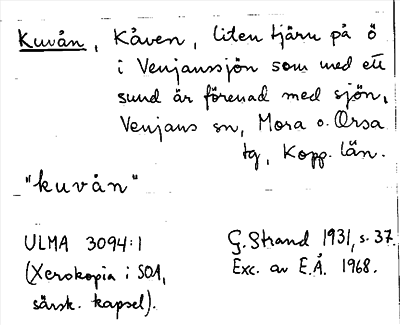 Kuvån, Kåven, liten tjärn på ö
i Venjanssjön som med ett
sund är förenad med sjön,
Venjans sn, Mora o. Orsa
tg, Kopp. län.
"kuvån"
ULMA 3094:1
(Xerokopia i SOA,
särsk. kapsel).
G. Strand 1931, s. 37.
Exc. av E.Å. 1968.